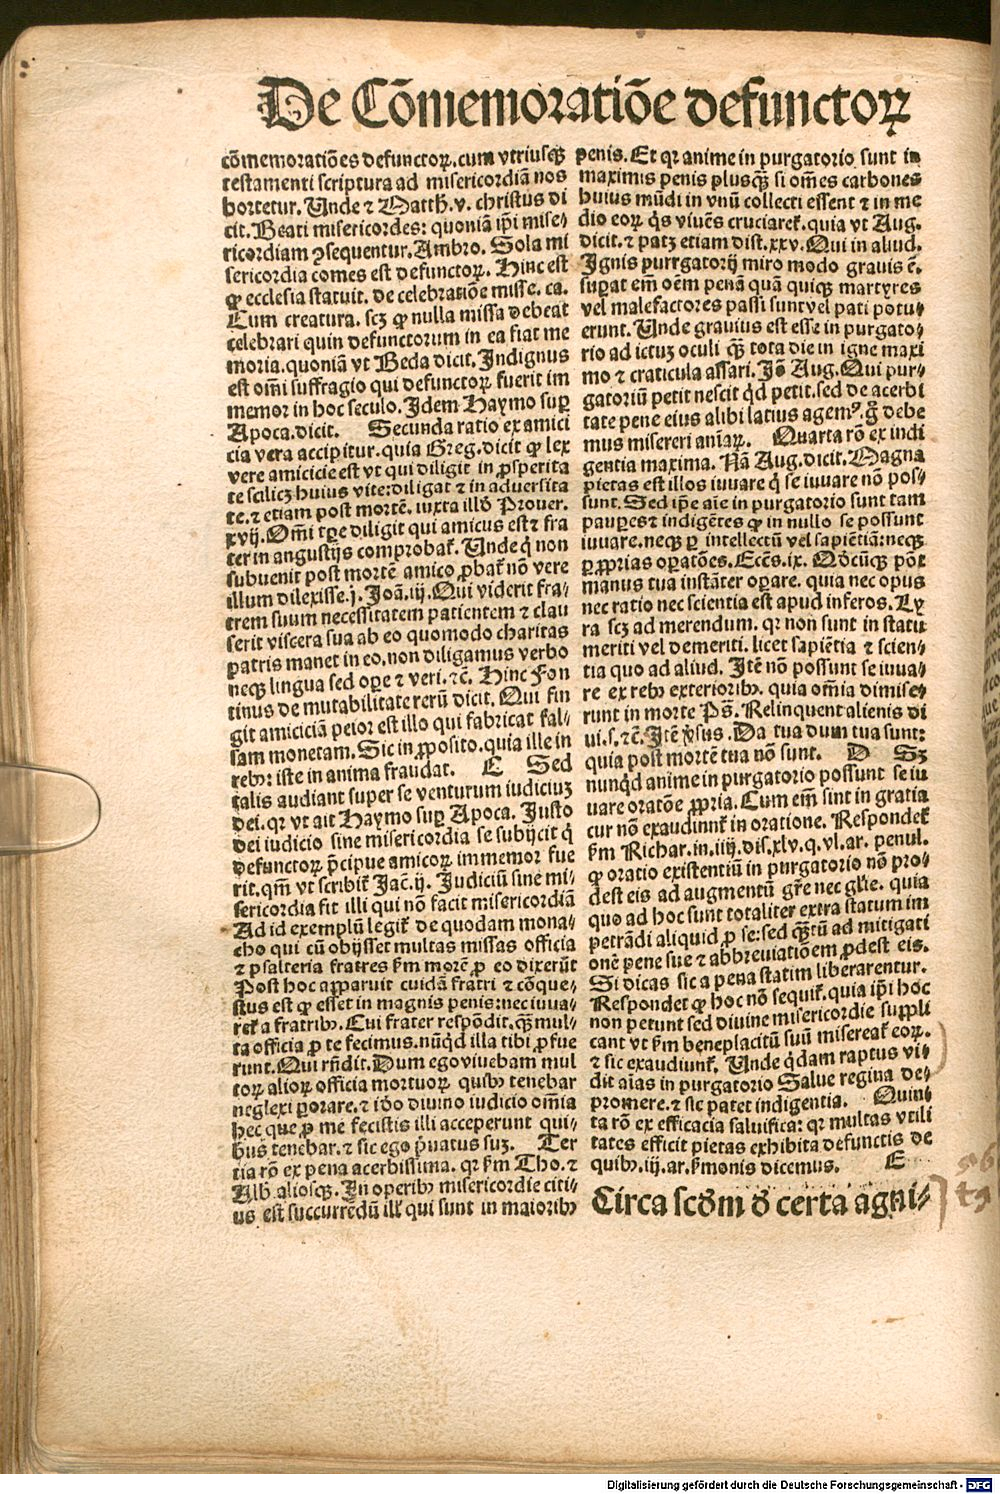 De Cōmemoratiōe defunctoꝝ
cōmemoratiōes defunctoꝝ. cum vtriusqꝫ
testamenti scriptura ad misericordiā nos
hortetur. Unde ⁊ Matth. v. christus di
cit. Beati misericordes: quoniā ip̄i mise-
ricordiam ꝯsequentur. Ambro. Sola mi
sericordia comes est defunctoꝝ. Hinc est
ꝙ ecclesia statuit. de celebratiōe misse. ca.
Cum creatura. scꝫ ꝙ nulla missa debeat
celebrari quin defunctorum in ea fiat me
moria. quoniā vt Beda dicit. Indignus
est om̄i suffragio qui defunctoꝝ fuerit im
memor in hoc seculo. Idem Haymo suꝑ
Apoca. dicit. Secunda ratio ex amici
cia vera accipitur. quia Greg. dicit ꝙ lex
vere amicicie est vt qui diligit in ꝓsperita
te scilicꝫ huius vite: diligat ⁊ in aduersita
te. ⁊ etiam post mortē. iuxta illđ Prouer.
xvij. Om̄i tꝑe diligit qui amicus est ⁊ fra
ter in angustijs comprobat̃. Unde q̇ non
subuenit post mortē amico ꝓbat̃ nō vere
illum dilexisse. j. Joā. iij. Qui viderit fra-
trem suum necessitatem patientem ⁊ clau
serit viscera sua ab eo quomodo charitas
patris manet in eo. non diligamus verbo
neqꝫ lingua sed oꝑe ⁊ veri. ⁊c̄. Hinc Fon
tinus de mutabilitate rerū dicit. Qui fin
git amiciciā peior est illo qui fabricat fal-
sam monetam. Sic in ꝓposito. quia ille in
rebꝫ: iste in anima fraudat. C Sed
talis audiant super se venturum iudiciuꝫ
dei. qꝛ vt ait Haymo suꝑ Apoca. Justo
dei iudicio sine misericordia se subijcit q̇
defunctoꝝ p̄cipue amicoꝝ immemor fue
rit. qm̄ vt scribit̃ Jac̄. ij. Judiciū sine mi-
sericordia fit illi qui nō facit misericordiā
Ad id exemplū legit̃ de quodam mona-
cho qui cū obijsset multas missas officia
⁊ psalteria fratres ẜm morē ꝓ eo dixerūt
Post hoc apparuit cuidā fratri ⁊ cōque-
stus est ꝙ esset in magnis penis: nec iuua-
ret̃ a fratribꝫ. Cui frater respōdit. qꝫ̄ mul-
ta officia ꝓ te fecimus. nūqđ illa tibi ꝓfue
runt. Qui rn̄dit. Dum ego viuebam mul
toꝝ alioꝝ officia mortuoꝝ quibꝫ tenebar
neglexi ꝑorare. ⁊ iđo diuino iudicio om̄ia
hec que ꝓ me fecistis illi acceperunt qui-
bus tenebar. ⁊ sic ego p̄uatus suꝫ. Ter
tia rō ex pena acerbissima. qꝛ ẜm Tho. ⁊
Alb. aliosqꝫ. In operibꝫ misericordie citi-
us est succurrēdū ill̄ qui sunt in maioribꝫ
penis. Et qꝛ anime in purgatorio sunt in
maximis penis plusqꝫ̄ si om̄es carbones
huius mūdi in vnū collecti essent ⁊ in me
dio eoꝝ q̇s viuēs cruciaret̃. quia vt Aug.
dicit. ⁊ patꝫ etiam dist. xxv. Qui in aliud.
Ignis purrgatorij miro modo grauis ē.
suꝑat em̄ oēm penā quā quiqꝫ martyres
vel malefactores passi sunt vel pati potu-
erunt. Unde grauius est esse in purgato-
rio ad ictuꝫ oculi qꝫ̄ tota die in igne maxi
mo ⁊ craticula assari. Iō Aug. Qui pur-
gatoriū petit nescit qđ petit. sed de acerbi
tate pene eius alibi latius agemꝰ. g̊ debe
mus misereri aīaꝝ. Quarta rō ex indi
gentia maxima. Nā Aug. dicit. Magna
pietas est illos iuuare q̇ se iuuare nō pos-
sunt. Sed ip̄e aīe in purgatorio sunt tam
pauꝑes ⁊ indigētes ꝙ in nullo se possunt
iuuare. neqꝫ ꝑ intellectū vel sapiētiā: neqꝫ
ꝑ ꝓprias oꝑatōes. Eccēs. ix. Qđcūqꝫ pōt
manus tua instāter oꝑare. quia nec opus
nec ratio nec scientia est apud inferos. Ly
ra scꝫ ad merendum. qꝛ non sunt in statu
meriti vel demeriti. licet sapiētia ⁊ scien-
tia quo ad aliud. Itē nō possunt se iuua-
re ex rebꝫ exterioribꝫ. quia om̄ia dimise-
runt in morte Ps̄. Relinquent alienis di
ui. s. ⁊c̄. Itē v̓sus. Da tua dum tua sunt:
quia post mortē tua nō sunt. D Sꝫ
nunqđ anime in purgatorio possunt se iu
uare oratōe ꝓpria. Cum em̄ sint in gratia
cur nō exaudiunt̃ in oratione. Respondet̃
ẜm Richar. in. iiij. dis. xlv. q. vl. ar. penul.
ꝙ oratio existentiū in purgatorio nō pro-
dest eis ad augmentū gr̄e nec gl̄ie. quia
quo ad hoc sunt totaliter extra statum im
petrādi aliquid ꝓ se: sed qꝫ̄tū ad mitigati
onē pene sue ⁊ abbreuiatiōem ꝓdest eis.
Si dicas sic a pena statim liberarentur.
Respondet ꝙ hoc nō sequit̃. quia ip̄i hoc
non petunt sed diuine misericordie suppli
cant vt ẜm beneplacitū suū misereat̃ eoꝝ.
⁊ sic exaudiunt̃. Unde q̇dam raptus vi-
dit aīas in purgatorio Salue regina de-
promere. ⁊ sic patet indigentia. Quin
ta rō ex efficacia saluifica: qꝛ multas vtili
tates efficit pietas exhibita defunctis de
quibꝫ. iij. ar. ẜmonis dicemus. E
Circa scđm đ certa agni-
Digitalisierung gefördert durch die Deutsche Forschungsgemeinschaft - DFG